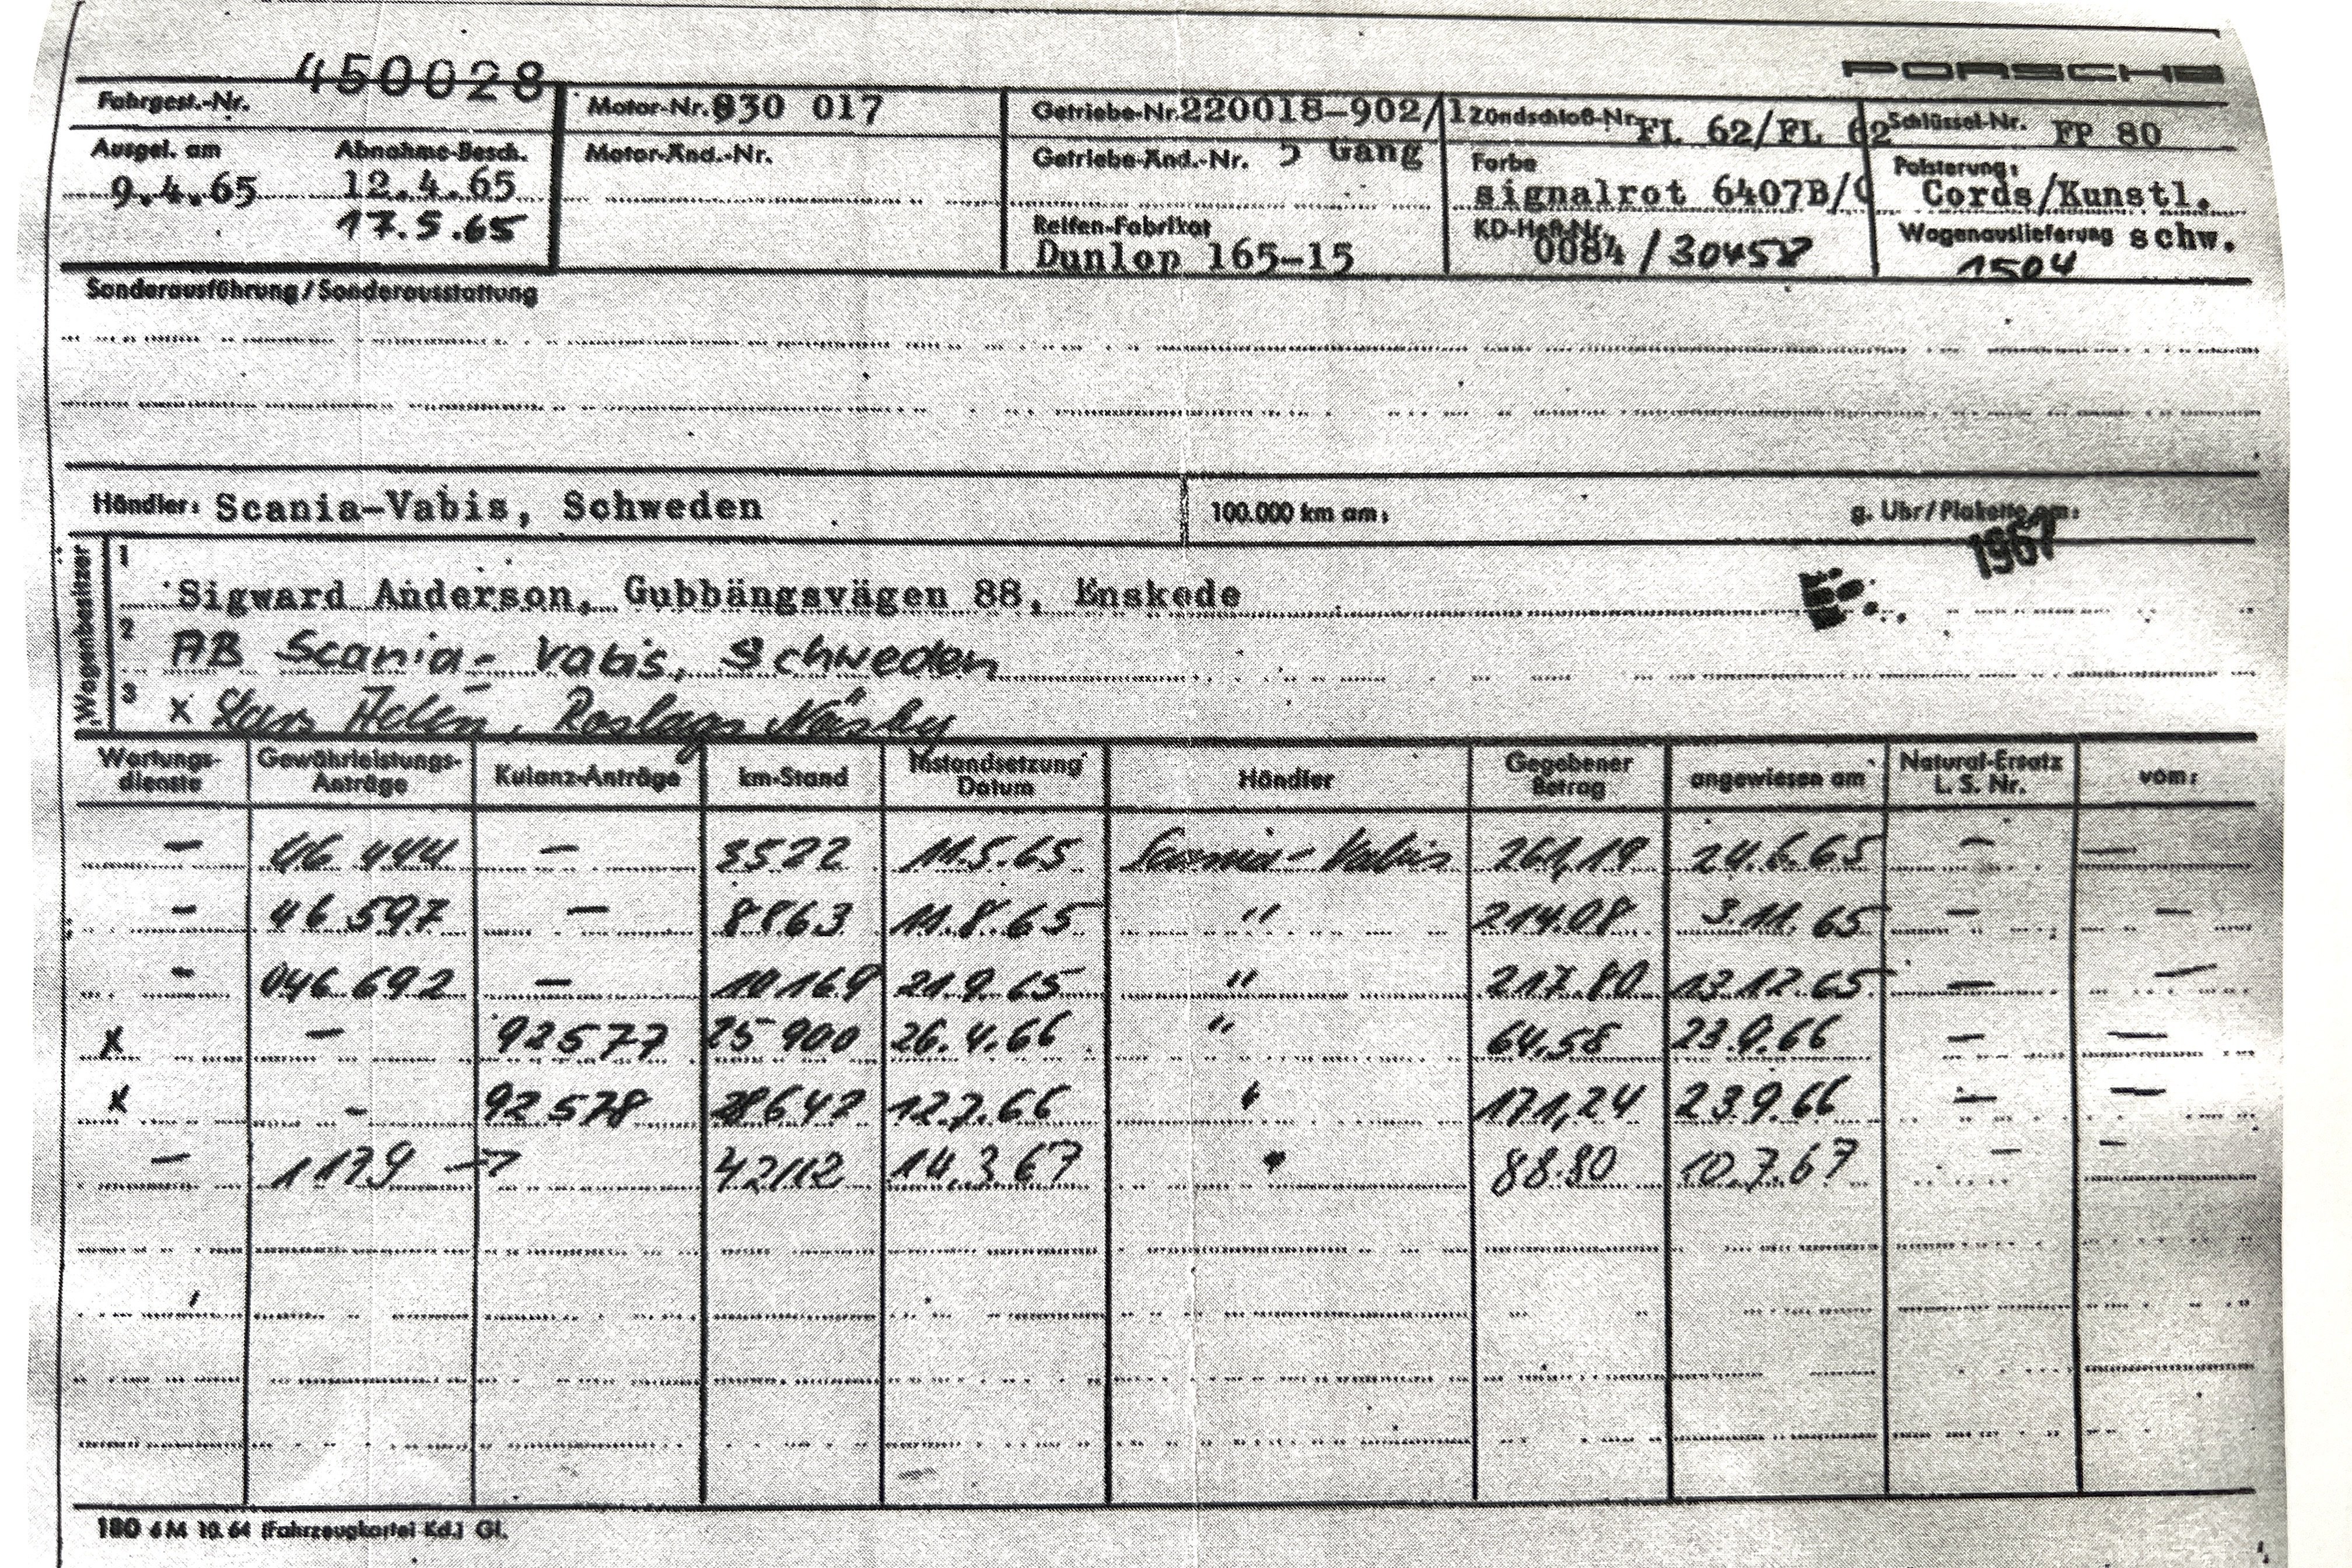 450028
PORSCHE
Fahrgest.-Nr.
Motor-Nr. 830 017
Getriebe-Nr. 220018-902/1
Zündschloß-Nr. FL 62/FL 62
Schlüssel-Nr. FP 80
Ausgel. am
Abnahme-Besch.
Motor-Änd.-Nr.
Getriebe-Änd.-Nr. 5 Gang
Farbe
Polsterung:
9.4.65
12.4.65
signalrot 6407B/
Cords/Kunstl.
17.5.65
Reifen-Fabrikat
KD-Heft-Nr.
Wagenauslieferung schw.
Dunlop 165-15
0084/30458
1504
Sonderausführung/Sonderausstattung
Händler: Scania-Vabis, Schweden
100.000 km am:
g. Uhr/Plakette am:
1967
Wagenbesitzer
1
Sigward Anderson, Gubbängsvägen 88, Enskede
2
AB Scania-Vabis, Schweden
3
x Lars Adén, Roslags Näsby
Wartungs-dienste
Gewährleistungs-Anträge
Kulanz-Anträge
km-Stand
Instandsetzung Datum
Händler
Gegebener Betrag
angewiesen am
Natural-Ersatz L. S. Nr.
vom:
— 46 444 — 3522 11.5.65 Scania-Vabis 261,19 24.6.65 — —
— 46 597 — 8863 11.8.65 " 214.08 3.11.65 — —
— 046.692 — 10169 21.9.65 " 217.80 13.12.65 — —
x — 92577 25 900 26.4.66 " 64,58 23.9.66 — —
x - 92 578 28642 12.7.66 " 171,24 23.9.66 — —
— 1179 → 42112 14.3.67 " 88.80 10.7.67 — —
180 6M 10.64 (Fahrzeugkartei Kd.) Gl.